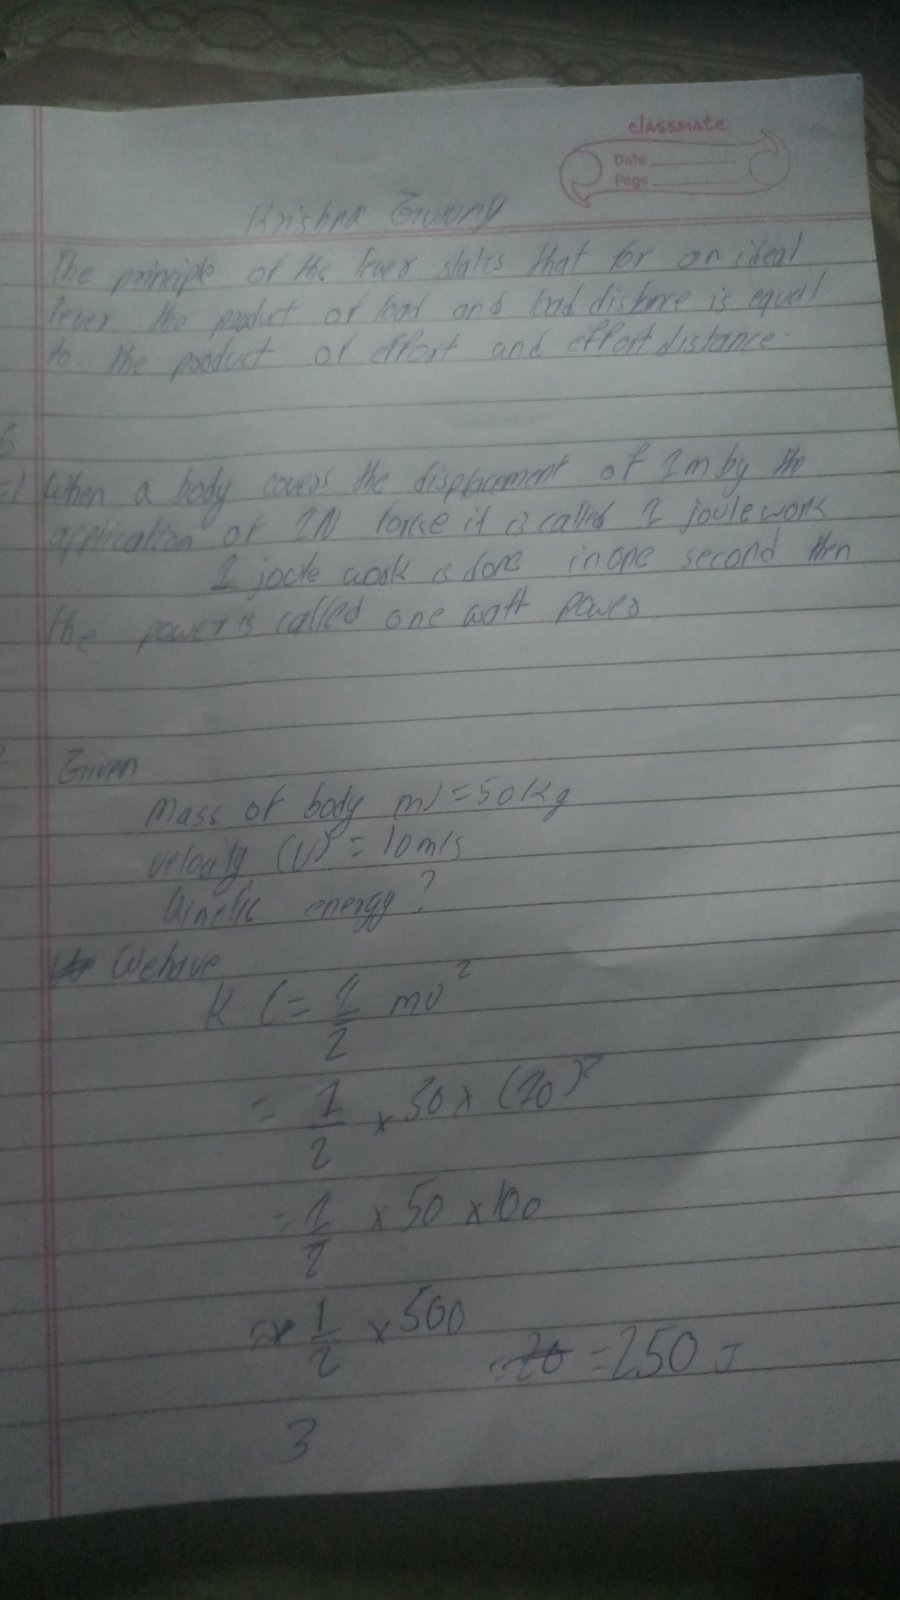 classmate
Date
Page
Krishna Gurung
The principle of the lever states that for an ideal
lever the product of load and load distance is equal
to the product of effort and effort distance.
6
=) When a body covers the displacement of 1m by the
application of 1N force it is called 1 joule work
1 joule work is done in one second then
the power is called one watt power
Given
Mass of body m) = 50kg
velocity (v) = 10m/s
kinetic energy?
We have
K.E = 1/2 mv²
= 1/2 × 50 × (10)²
= 1/2 × 50 × 100
= 1/2 × 500
= 250 J
3